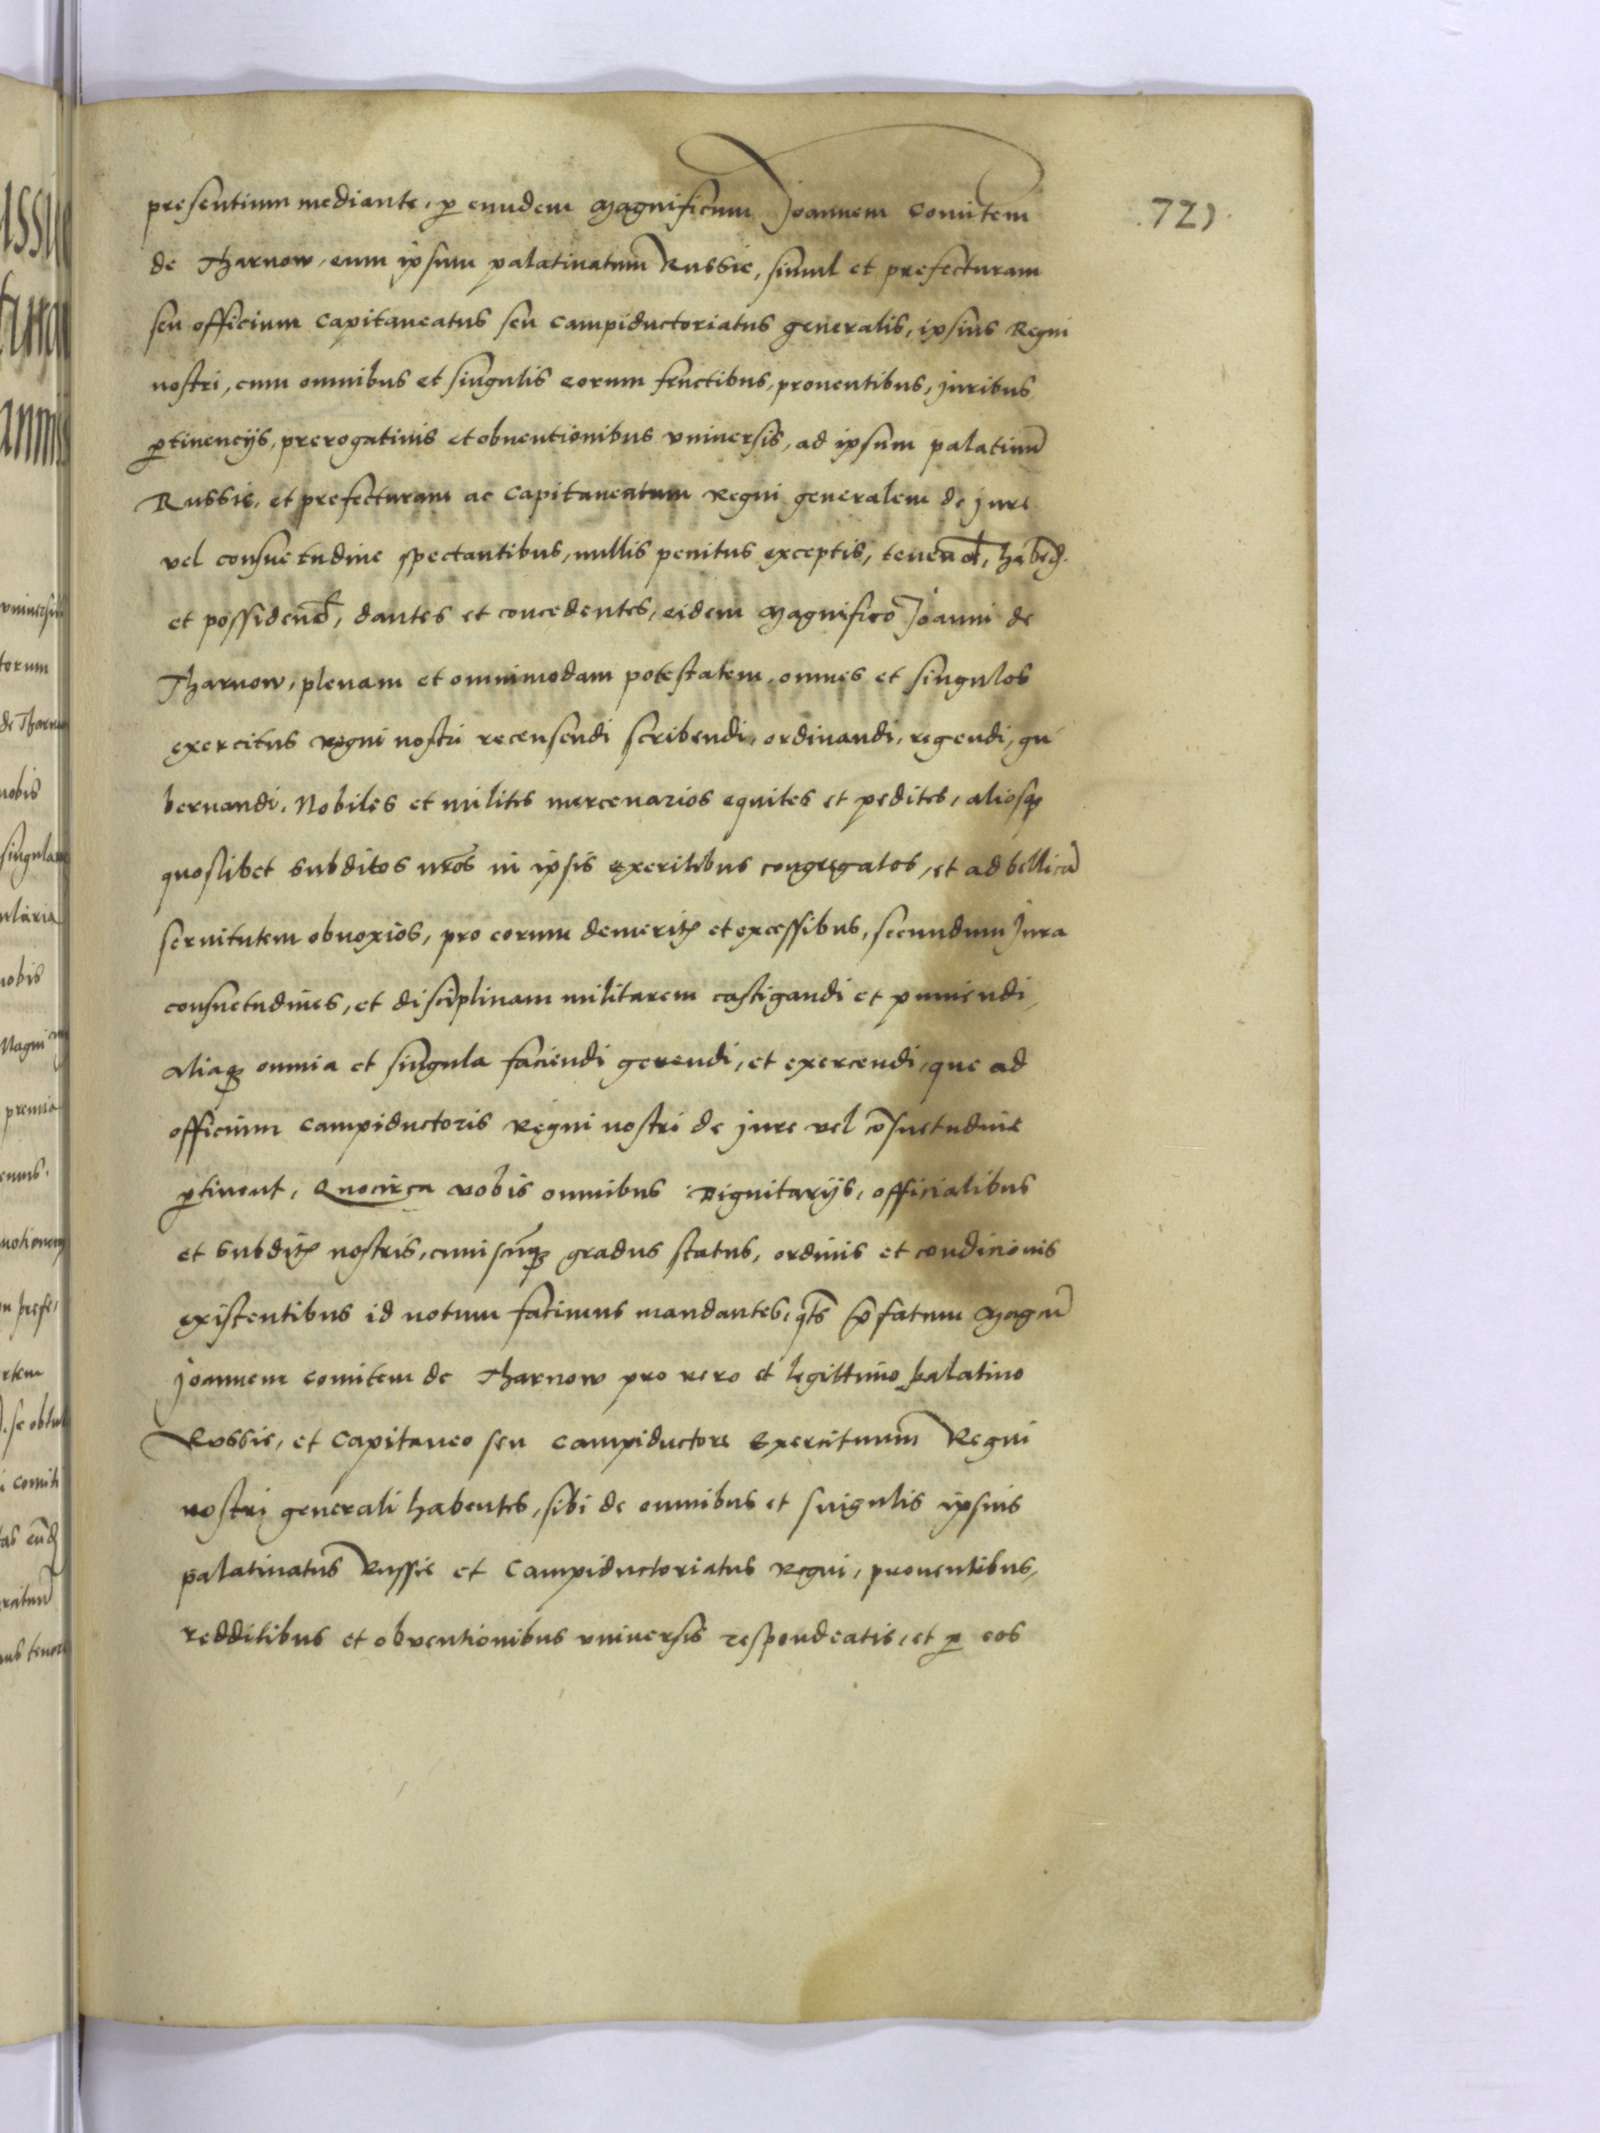 721
presentium mediante, ꝑ eundem Magnificum Joannem Comitem
de Tharnow, eum ipsum palatinatum Russie, simul et prefecturam
seu officium Capitaneatus seu Campiductoriatus generalis, ipsius Regni
nostri, cum omnibus et singulis eorum fructibus, prouentibus, Juribus
ꝑtinencijs, prerogatiuis et obuentionibus vniuersis, ad ipsum palatinū
Russie, et prefecturam ac Capitaneatum Regni generalem de jure
vel consuetudine spectantibus, nullis penitus exceptis, tenend, habend.
et possidend, dantes et concedentes, eidem Magnifico Joanni de
Tharnow, plenam et omnimodam potestatem, omnes et singulos
exercitus regni nostri recensendi scribendi, ordinandi, regendi, gu
bernandi, Nobiles et milites mercenarios equites et pedites, aliosqꝫ
quoslibet subditos nr̄os in ipsis exercitibus congregatos, et ad bellicā
seruitutem obnoxios, pro eorum demeritꝭ et excessibus, secundum Jura
consuetudines, et disciplinam militarem castigandi et puniendi,
aliaqꝫ omnia et singula faciendi gerendi, et exercendi, que ad
officium Campiductoris Regni nostri de jure vel cōsuetudine
ꝑtinent, Quocirca vobis omnibus Dignitarijs, officialibus
et subditꝭ nostris, cuiuscūqꝫ gradus status, ordinis et condicionis
existentibus id notum facimus mandantes, qts p̄fatum Magcū
Joannem comitem de Tharnow pro vero et legittimo palatino
Russie, et Capitaneo seu Campiductore Exercituum Regni
nostri generali habentes, sibi de omnibus et singulis ipsius
palatinatus Russie et Campiductoriatus Regni, prouentibus,
redditibus et obventionibus vniuersis respondeatis, et ꝑ eos